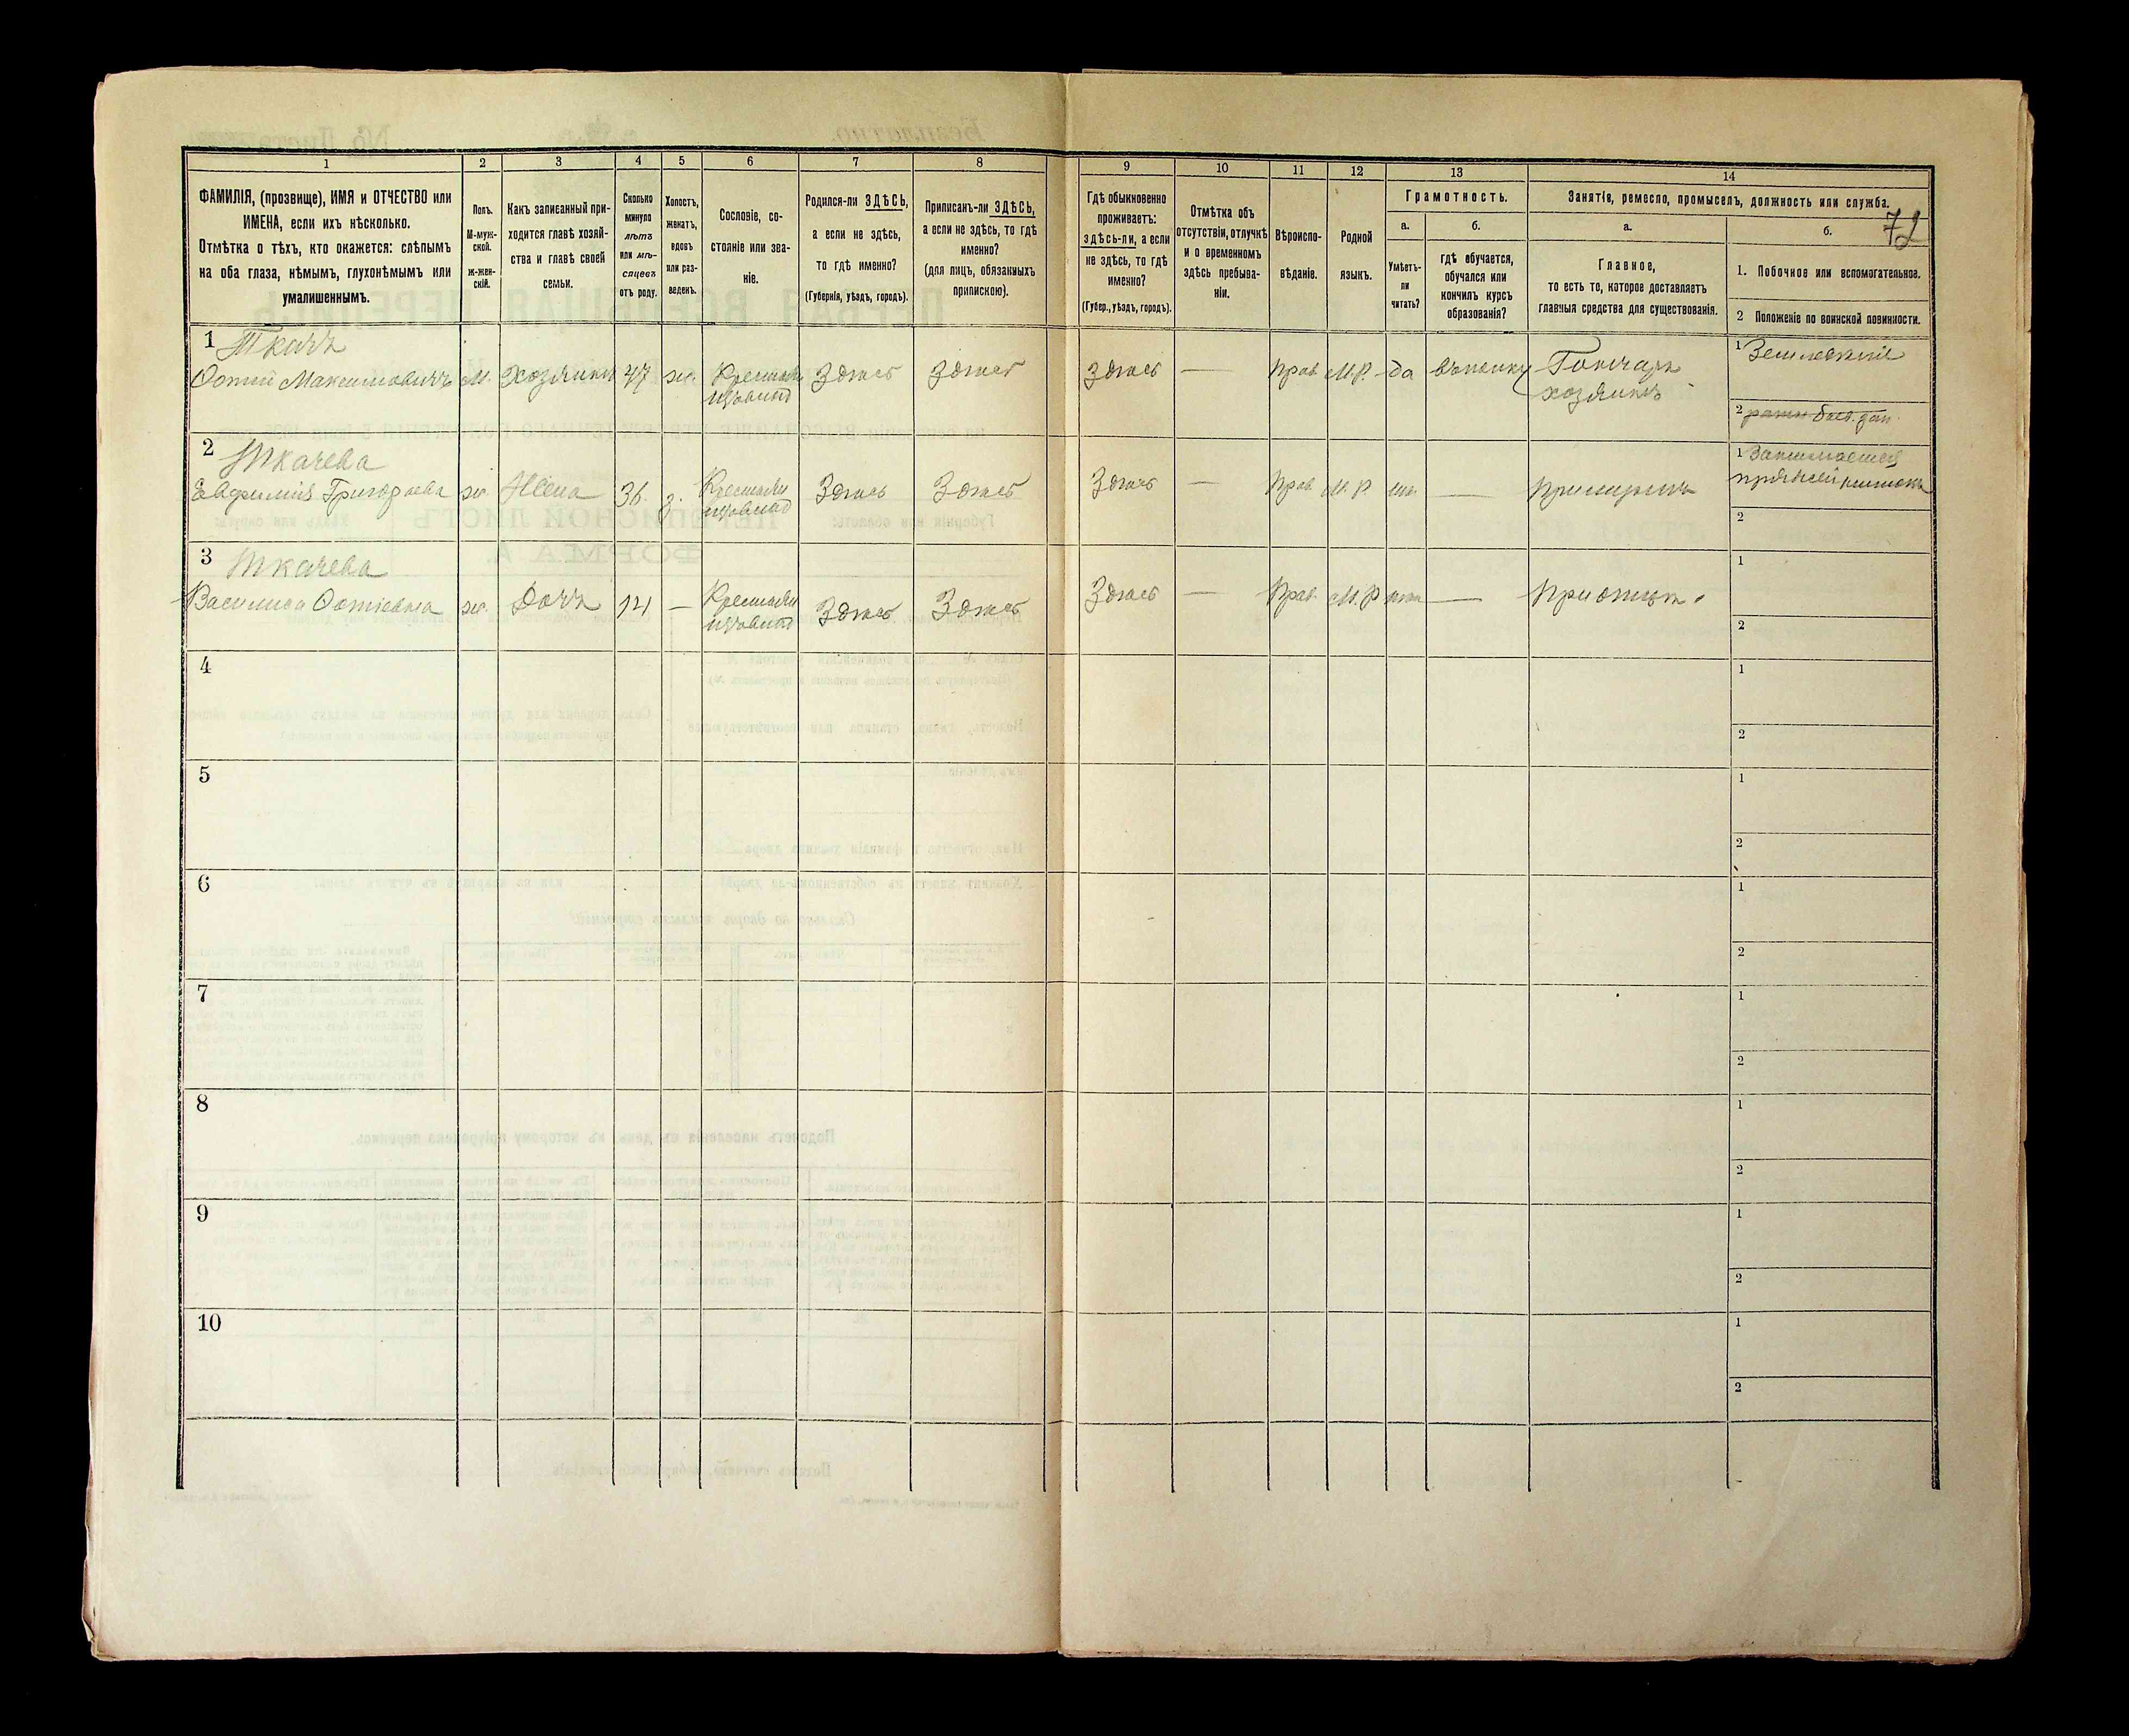 1
2
3
4
5
6
7
8
ФАМИЛІЯ, (прозвище), ИМЯ и ОТЧЕСТВО или
ИМЕНА, если ихъ нѣсколько.
Отмѣтка о тѣхъ, кто окажется: слѣпымъ
на оба глаза, нѣмымъ, глухонѣмымъ или
умалишеннымъ.
Полъ.
М-муж-
ской.
Ж-жен-
скій.
Какъ записанный при-
ходится главѣ хозяй-
ства и главѣ своей
семьи.
Сколько
минуло
лѣтъ
или мѣ-
сяцевъ
отъ роду.
Холостъ,
женатъ,
вдовъ
или раз-
веденъ.
Сословіе, со-
стояніе или зва-
ніе.
Родился-ли ЗДѢСЬ,
а если не здѣсь,
то гдѣ именно?
(Губернія, уѣздъ, городъ).
Приписанъ-ли ЗДѢСЬ,
а если не здѣсь, то гдѣ
именно?
(для лицъ, обязанныхъ
припискою).
9
10
11
12
13
14
Гдѣ обыкновенно
проживаетъ:
здѣсь-ли, а если
не здѣсь, то гдѣ
именно?
(Губер., уѣздъ, городъ).
Отмѣтка объ
отсутствіи, отлучкѣ
и о временномъ
здѣсь пребыва-
ніи.
Вѣроиспо-
вѣданіе.
Родной
языкъ.
Грамотность.
а.
б.
Умѣетъ-
ли
читать?
гдѣ обучается,
обучался или
кончилъ курсъ
образованія?
Занятія, ремесло, промыселъ, должность или служба.
72
а.
б.
Главное,
то есть то, которое доставляетъ
главныя средства для существованія.
1. Побочное или вспомогательное.
2 Положеніе по воинской повинности.
1 Ткачъ
Фотій Максимовичъ м. Хозяинъ 47 ж. Здѣсь Здѣсь
Здѣсь — Прав. М.Р. да Гончаръ
хозяинъ
1 Земледѣліе
2
2 Ткачева
Евфимія Григорьева ж. Жена 36 з. Здѣсь Здѣсь
Здѣсь — Прав. М.Р. —
1 Занимается
пряжей
2
3 Ткачева
Василиса Фотіевна ж. Дочь — Здѣсь Здѣсь
Здѣсь — Прав. М.Р. — При отцѣ.
1
2
4
1
2
5
1
2
6
1
2
7
1
2
8
1
2
9
1
2
10
1
2